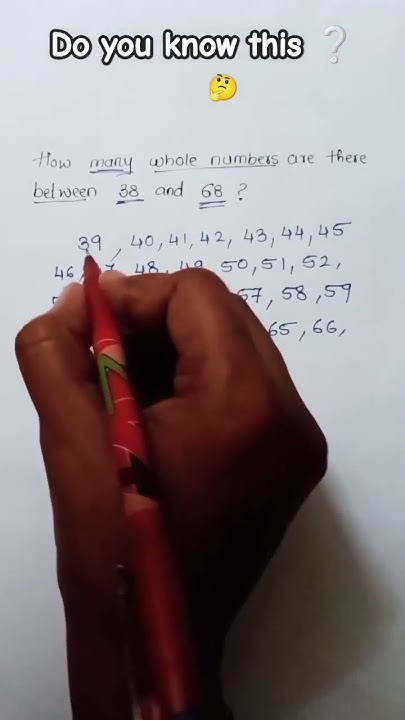 Do you know this ❔
🤔
How many whole numbers are there
between 38 and 68 ?
39, 40, 41, 42, 43, 44, 45
46, 48, 49, 50, 51, 52,
57, 58, 59
65, 66,